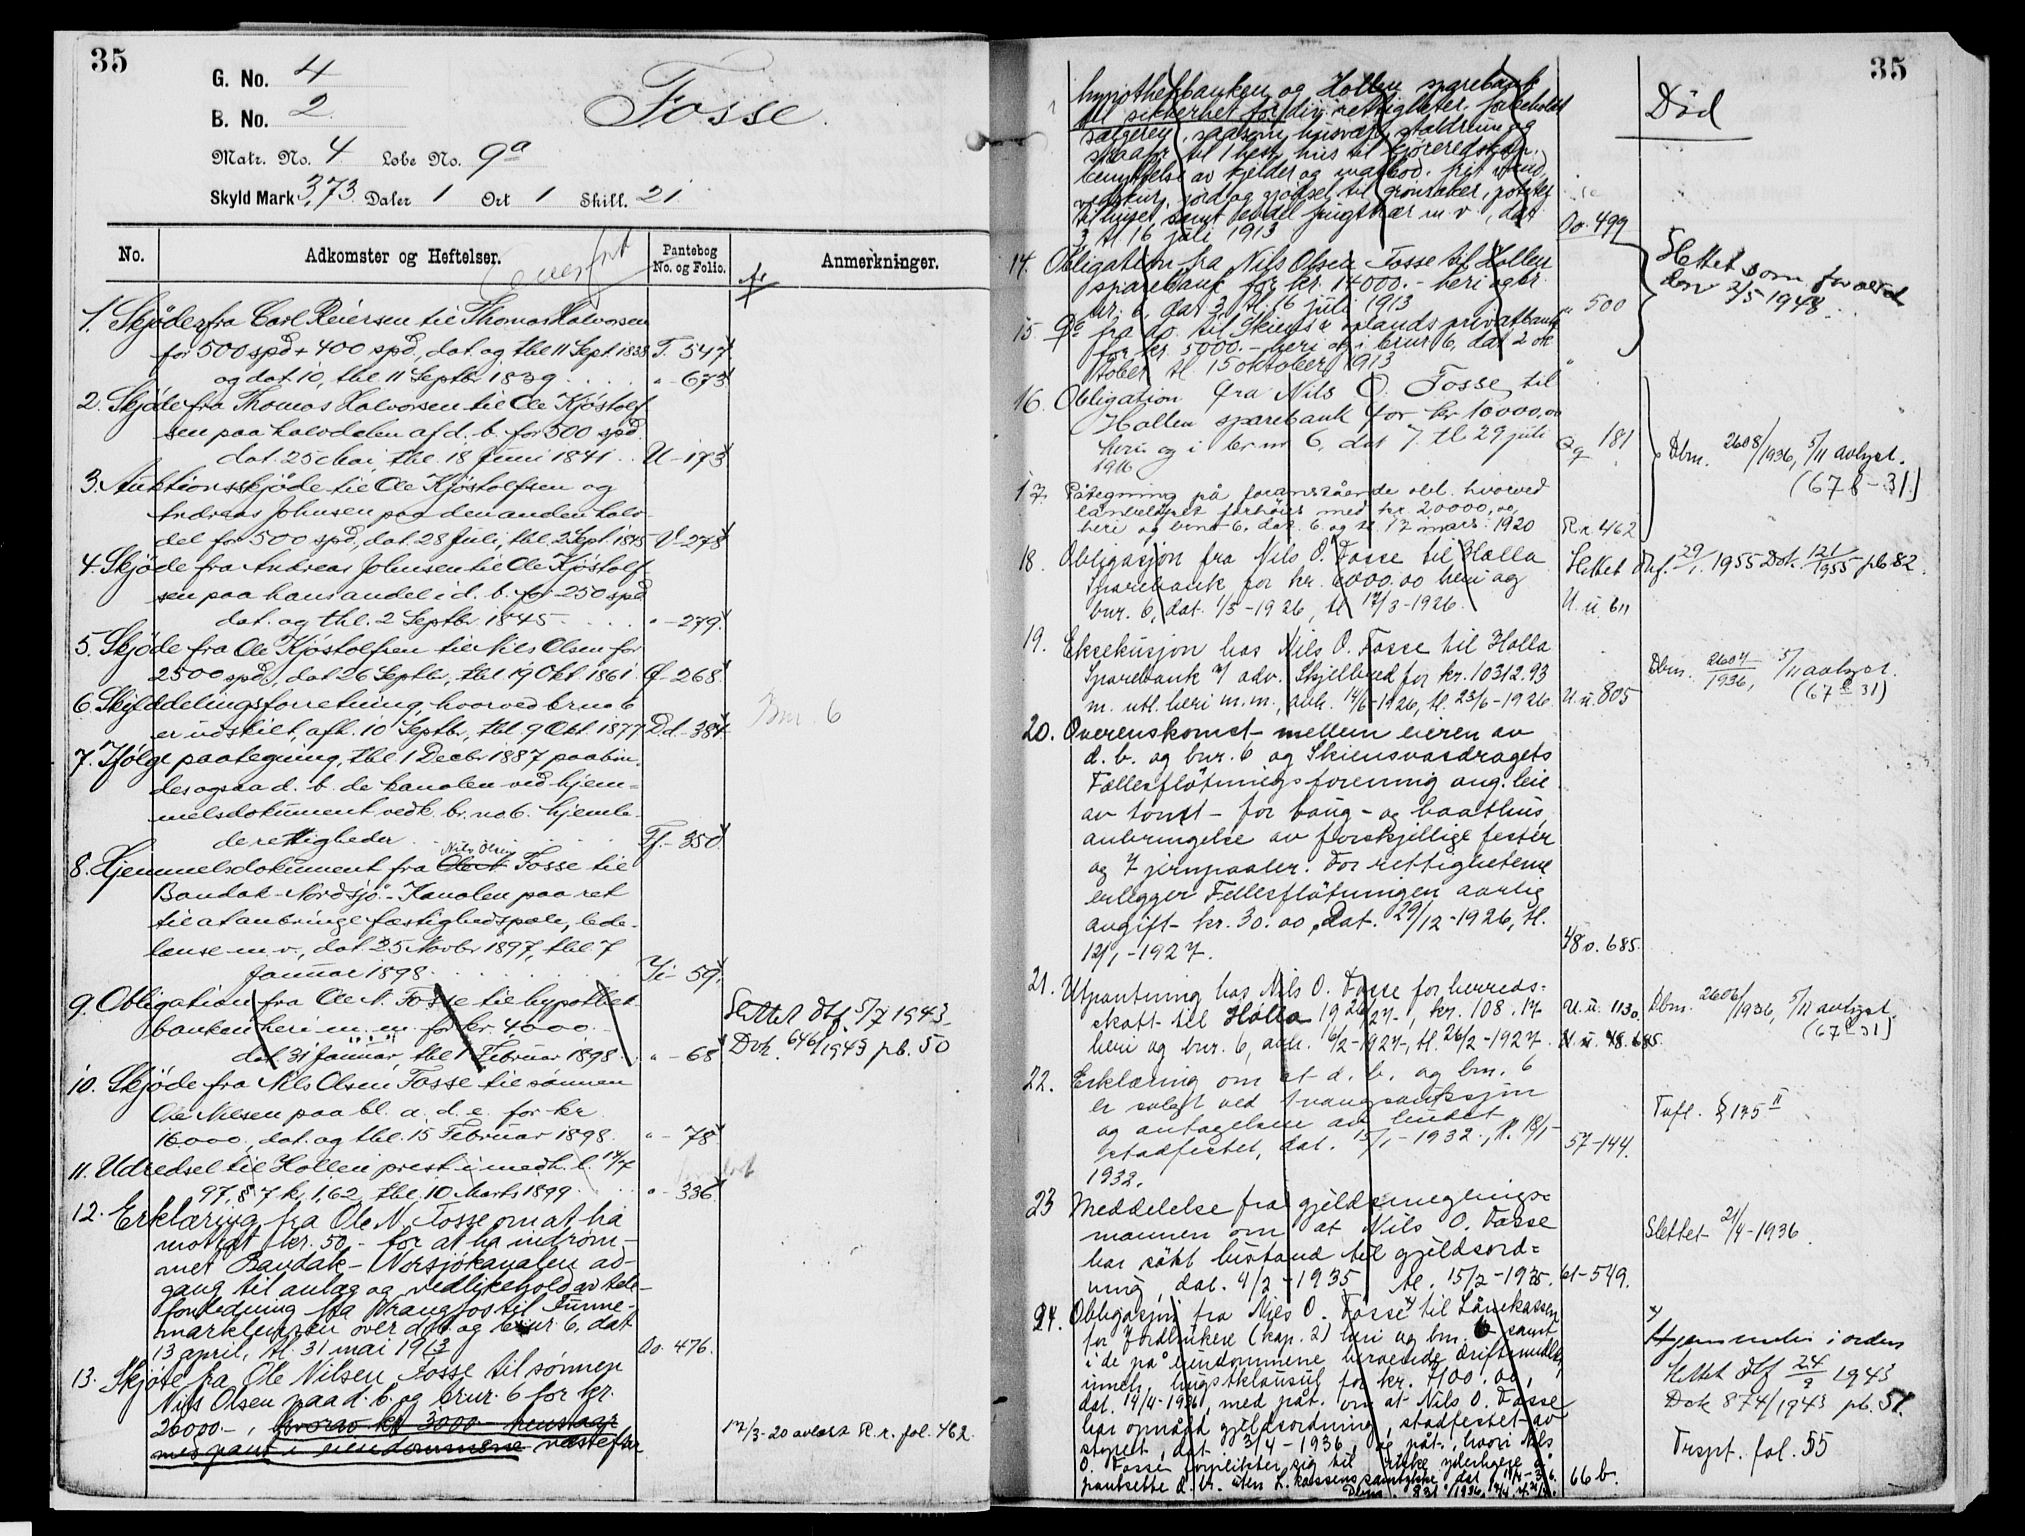 35
G. No. 4
B. No. 2
Fosse.
Matr. No. 4 Løbe No. 9a
Skyld Mark 3,73 Daler 1 Ort 1 Skill. 21
No. Adkomster og Heftelser. Pantebog No. og Folio. Anmerkninger.
Overført
1. Skjøder fra Carl Reiersen til Thomas Halvorsen
for 500 spd + 400 spd, dat. og thl. 11 Sept. 1838 T. 547
og dat. 10, thl. 11 Septbr. 1839 . . . " - 673
2. Skjøde fra Thomas Halvorsen til Ole Kjøstolf-
sen paa halvdelen af d. b. for 500 spd.
dat. 25 Mai, thl. 18 Juni 1841 . . U - 173
3. Auktionsskjøde til Ole Kjøstolfsen og
Andreas Johnsen paa den anden halv-
del for 500 spd, dat. 28 Juli, thl. 2 Sept. 1845 V - 278
4. Skjøde fra Andreas Johnsen til Ole Kjøstolf-
sen paa hans andel i d. b. for 250 spd
dat. og thl. 2 Septbr. 1845 . . . " - 279
5. Skjøde fra Ole Kjøstolfsen til Nils Olsen for
2500 spd, dat 26 Septbr, thl 19 Okt. 1861 Ø - 268
6. Skylddelingsforretning, hvorved br. no 6
er udskilt, afh. 10 Septbr, thl. 9 Okt. 1877 D.d - 384 Bnr. 6
7. Ifølge paategning, thl. 1 Decbr 1887 paabin-
des ogsaa d. b. de kanalen ved hjem-
melsdokument vedk. br. no 6. hjemle-
de rettigheder . . . Ff - 350
Nils Olsen
8. Hjemmelsdokument fra Ole N. Fosse til
Bandak-Nordsjø-Kanalen paa ret
til at anbringe fæstighedspæle, lede-
lense m. v., dat. 25 Novbr 1897, thl. 7
Januar 1898 . . . Ii - 59
9. Obligation fra Ole N. Fosse til hypothek-
banken heri m. m. for kr 4000.- Slettet dtf. 5/7 1943
dat. 31 Januar, thl. 1 Februar 1898 " - 68 Dok. 646/1943 pb. 50
10. Skjøde fra Nils Olsen Fosse til sønnen
Ole Nilsen paa bl. a. d. e. for kr
16000, dat. og thl. 15 Februar 1898. " - 78
11. Udredsel til Hollen prest i medh. l. 14/7
97, § 7 kr. 1,62, thl. 10 Marts 1899. " - 336
12. Erklæring fra Ole N. Fosse om at ha
motat kr. 50,- for at ha indrøm-
met Bandak-Norsjøkanalen ad-
gang til anlæg og vedlikehold av tele-
fonledning fra Vrangfos til Tunne-
marklensen over d. b. og brnr. 6, dat
13 april, tl. 31 mai 1913 Oo. 476.
13. Skjøte fra Ole Nilsen Fosse til sønnen
Nils Olsen paa d. b. og brnr. 6 for kr.
26000.-, hvorav kr 3000.- henstaar
med pant i eiendommene næstefter 17/3-20 avlæst R.r. fol. 462.
35
hypothekbanken og Hollen sparebank Død
til sikkerhet for div. rettigheter forbeholdt
sælgeren, saasom husvær, staldrum og
til 1 hest, hus til kjøreredskap.
benyttelse av kjelder og matbod, frit vand,
vedskur, jord og gjødsel til grønsaker, poteter
til huset, samt endel m v, dat.
3, tl 16 juli 1913 Oo. 499
14. Obligation fra Nils Olsen Fosse til Hollen Slettet som foræld.
sparebank for kr. 14000.- heri og br den 2/5 1948.
nr. 6, dat 3, tl. 16 juli 1913 " 500
15. Do fra do. til Skiens & oplands privatbank
for kr. 5000.- heri og i brnr 6, dat 2 ok-
tober, tl 15 oktober 1913 "
16. Obligation fra Nils O. Fosse til
Hollen sparebank for kr 10000,00
heri og i br nr 6, dat 7. tl 29 juli Qq 181 Dbnr. 2608/1936, 5/11 avlyst.
1916 (67 b - 31)
17. Påtegning på foranstående obl. hvorved
lånebeløpet forhøies med kr. 20000,00,
heri og brnr 6, dat. 6. og tl 17 mars 1920 R.r. 462
18. Obligasjon fra Nils O. Fosse til Holla Slettet dtf. 29/1. 1955 Dok. 121/1955 pb 82.
Sparebank for kr. 6000.00 heri og
bnr. 6, dat. 1/3-1926, tl 17/3-1926. U.u. 611
19. Eksekusjon hos Nils O. Fosse til Holla
Sparebank v/ adv. Skjelbred for kr. 10312.93 Dbnr. 2607/1936, 5/11 avlyst.
m. utl. heri m.m., avh. 14/6-1926, tl. 23/6-1926. U.u. 805 (67 b 31)
20. Overenskomst mellem eieren av
d. b. og bnr. 6 og Skiensvasdragets
Fællesfløtningsforening ang. leie
av tomt for baug- og baathus,
anbringelse av forskjellige fester
og 7 jernpaaler. For rettigheterne
erlegger Fellesfløtningen aarlig
avgift kr. 30.00. Dat. 29/12-1926, tl.
12/1-1927. 48 o. 685.
21. Utpantning hos Nils O. Fosse for herreds-
skatt til Holla 1926/27, kr. 108.17 U.u. 1130 Dbnr. 2606/1936, 5/11 avlyst.
heri og bnr. 6, avh. 16/2-1927, tl. 26/2-1927. (67 b 31)
22. Erklæring om at d. b. og bnr. 6
er solgt ved tvangsauksjon Tvfl. § 175 II
og antagelsen av budet
stadfestet, dat. 15/1-1932, tl. 18/1- 57-144.
1932.
23 Meddelelse fra gjeldsmeglings-
mannen om at Nils O. Fosse Slettet 21/4-1936.
har søkt bistand til gjeldsord-
ning, dat. 4/2-1935 tl. 15/2-1935. 61-549.
24. Obligasjon fra Nils O. Fosse x) til Lånekassen x)
for Jordbrukere (kap. 2) heri og bnr. 6 samt Hjemmelen i orden
i de på eiendommene beroende driftsmidler, Slettet dtf 24/9 1943
innel. kr. 7100.00, Dok 874/1943 pb. 51.
dat. 14/4-1936, med påt. om at Nils O. Fosse
har opnådd gjeldsordning, stadfestet av
styret, dat. 3/4-1936, og påt., hvori Nils Trspt. fol. 55
O. Fosse forplikter sig til ikke yderligere å
pantsette d. b. uten L. kassens samtykke, 66 b.